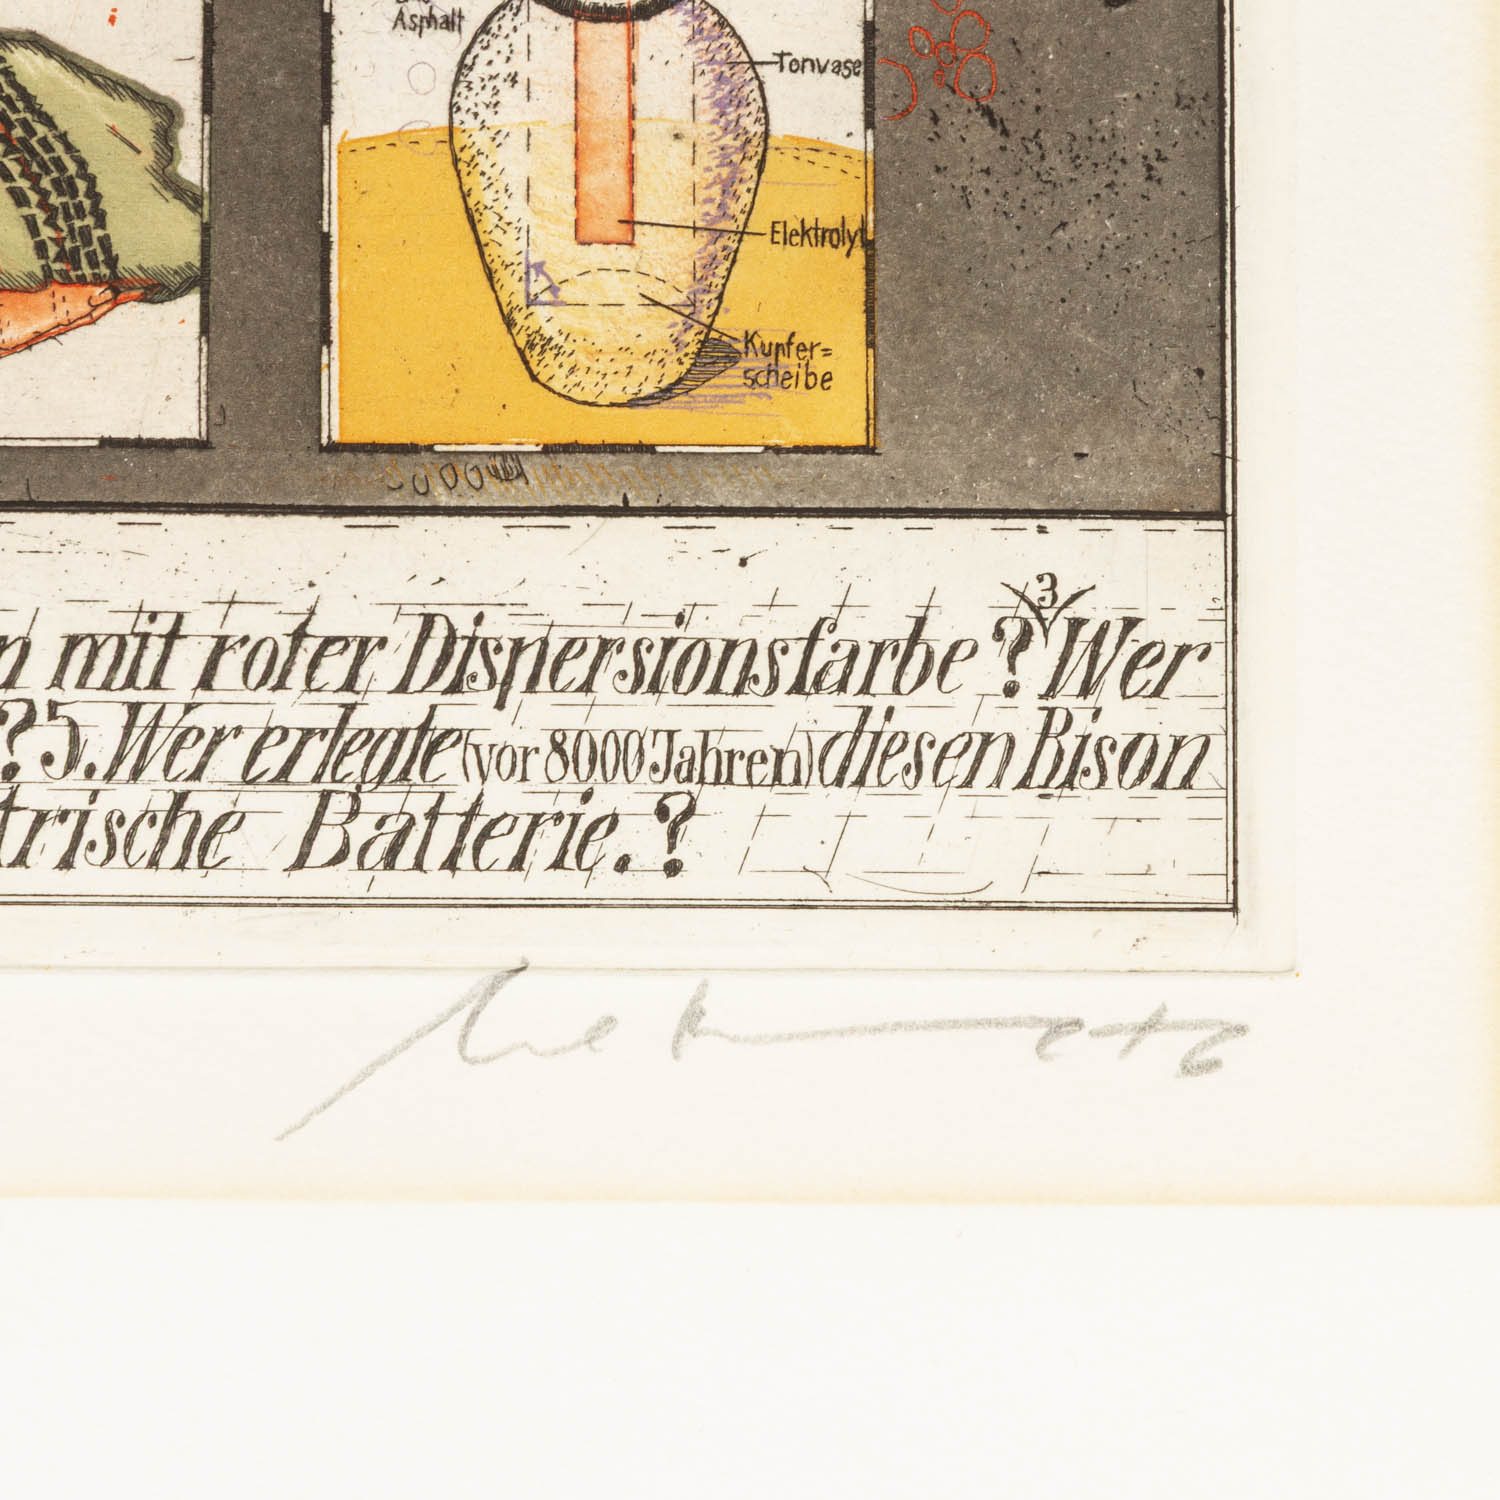 Asphalt
Tonvase
Elektrolyt
Kupfer=
scheibe
3
n mit roter Dispersionsfarbe? Wer
? 5. Wer erlegte (vor 8000 Jahren) diesen Bison
trische Batterie.?